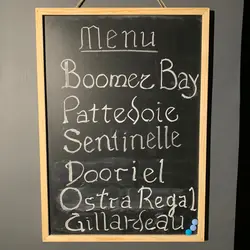 Menu
Boomer Bay
Pattedoie
Sentinelle
Dooriel
Ostra Regal
Gillardeau